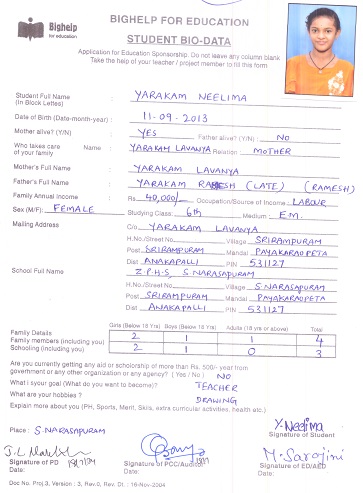 Bighelp
for education
BIGHELP FOR EDUCATION
STUDENT BIO-DATA
Application for Education Sponsorship. Do not leave any column blank
Take the help of your teacher / project member to fill this form
Student Full Name : YARAKAM NEELIMA
(in Block Letters)
Date of Birth (Date-month-year) : 11-09-2013
Mother alive? (Y/N) : YES Father alive? (Y/N) : NO
Who takes care Name : YARAKAM LAVANYA Relation : MOTHER
of your family
Mother's Full Name : YARAKAM LAVANYA
Father's Full Name : YARAKAM RAMESH (LATE) (RAMESH)
Family Annual Income : Rs. 40,000/- Occupation/Source of Income : LABOUR
Sex (M/F): FEMALE Studying Class: 6th Medium: E.M.
Mailing Address C/o YARAKAM LAVANYA
H.No./Street No. Village SRIRAMPURAM
Post SRIRAMPURAM Mandal PAYAKARAOPETA
Dist ANAKAPALLI PIN 531127
School Full Name : Z.P.H.S, S.NARASAPURAM
H.No./Street No. Village S.NARASAPURAM
Post SRIRAMPURAM Mandal PAYAKARAOPETA
Dist ANAKAPALLI PIN 531127
Family Details Girls (Below 18 Yrs) Boys (Below 18 Yrs) Adults (18 yrs or above) Total
Family members (including you) 2 1 1 4
Schooling (including you) 2 1 0 3
Are you currently getting any aid or scholarship of more than Rs. 500/- year from
government or any other organization or any agency? ( Yes / No ) NO
What i syour goal (What do you want to become)? TEACHER
What are your hobbies ? DRAWING
Explain more about you (PH, Sports, Merit, Skils, extra curricular activities, health etc.)
Place : S.NARASAPURAM
Y.Neelima
Signature of Student
M.Sarojini
Signature of PD
Date:
Signature of PCC/Auditor
Date:
Signature of ED/AED
Date:
Doc No. Proj 3, Version : 3, Rev.0, Rev. Dt. : 16-Nov-2004